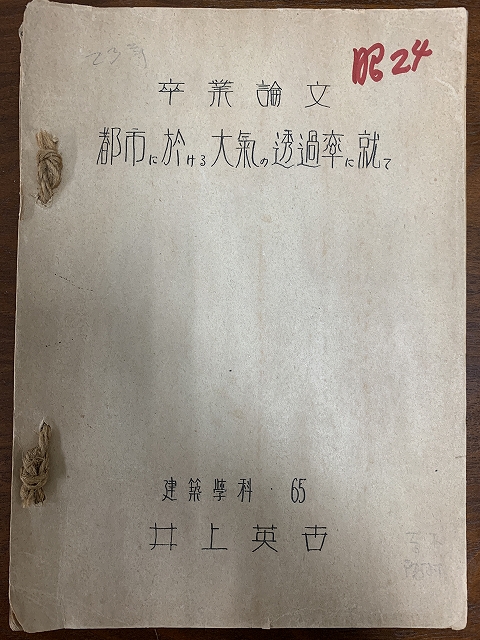 昭24
卒業論文
都市に於ける大氣の透過率に就て
建築學科・65
井上英吉